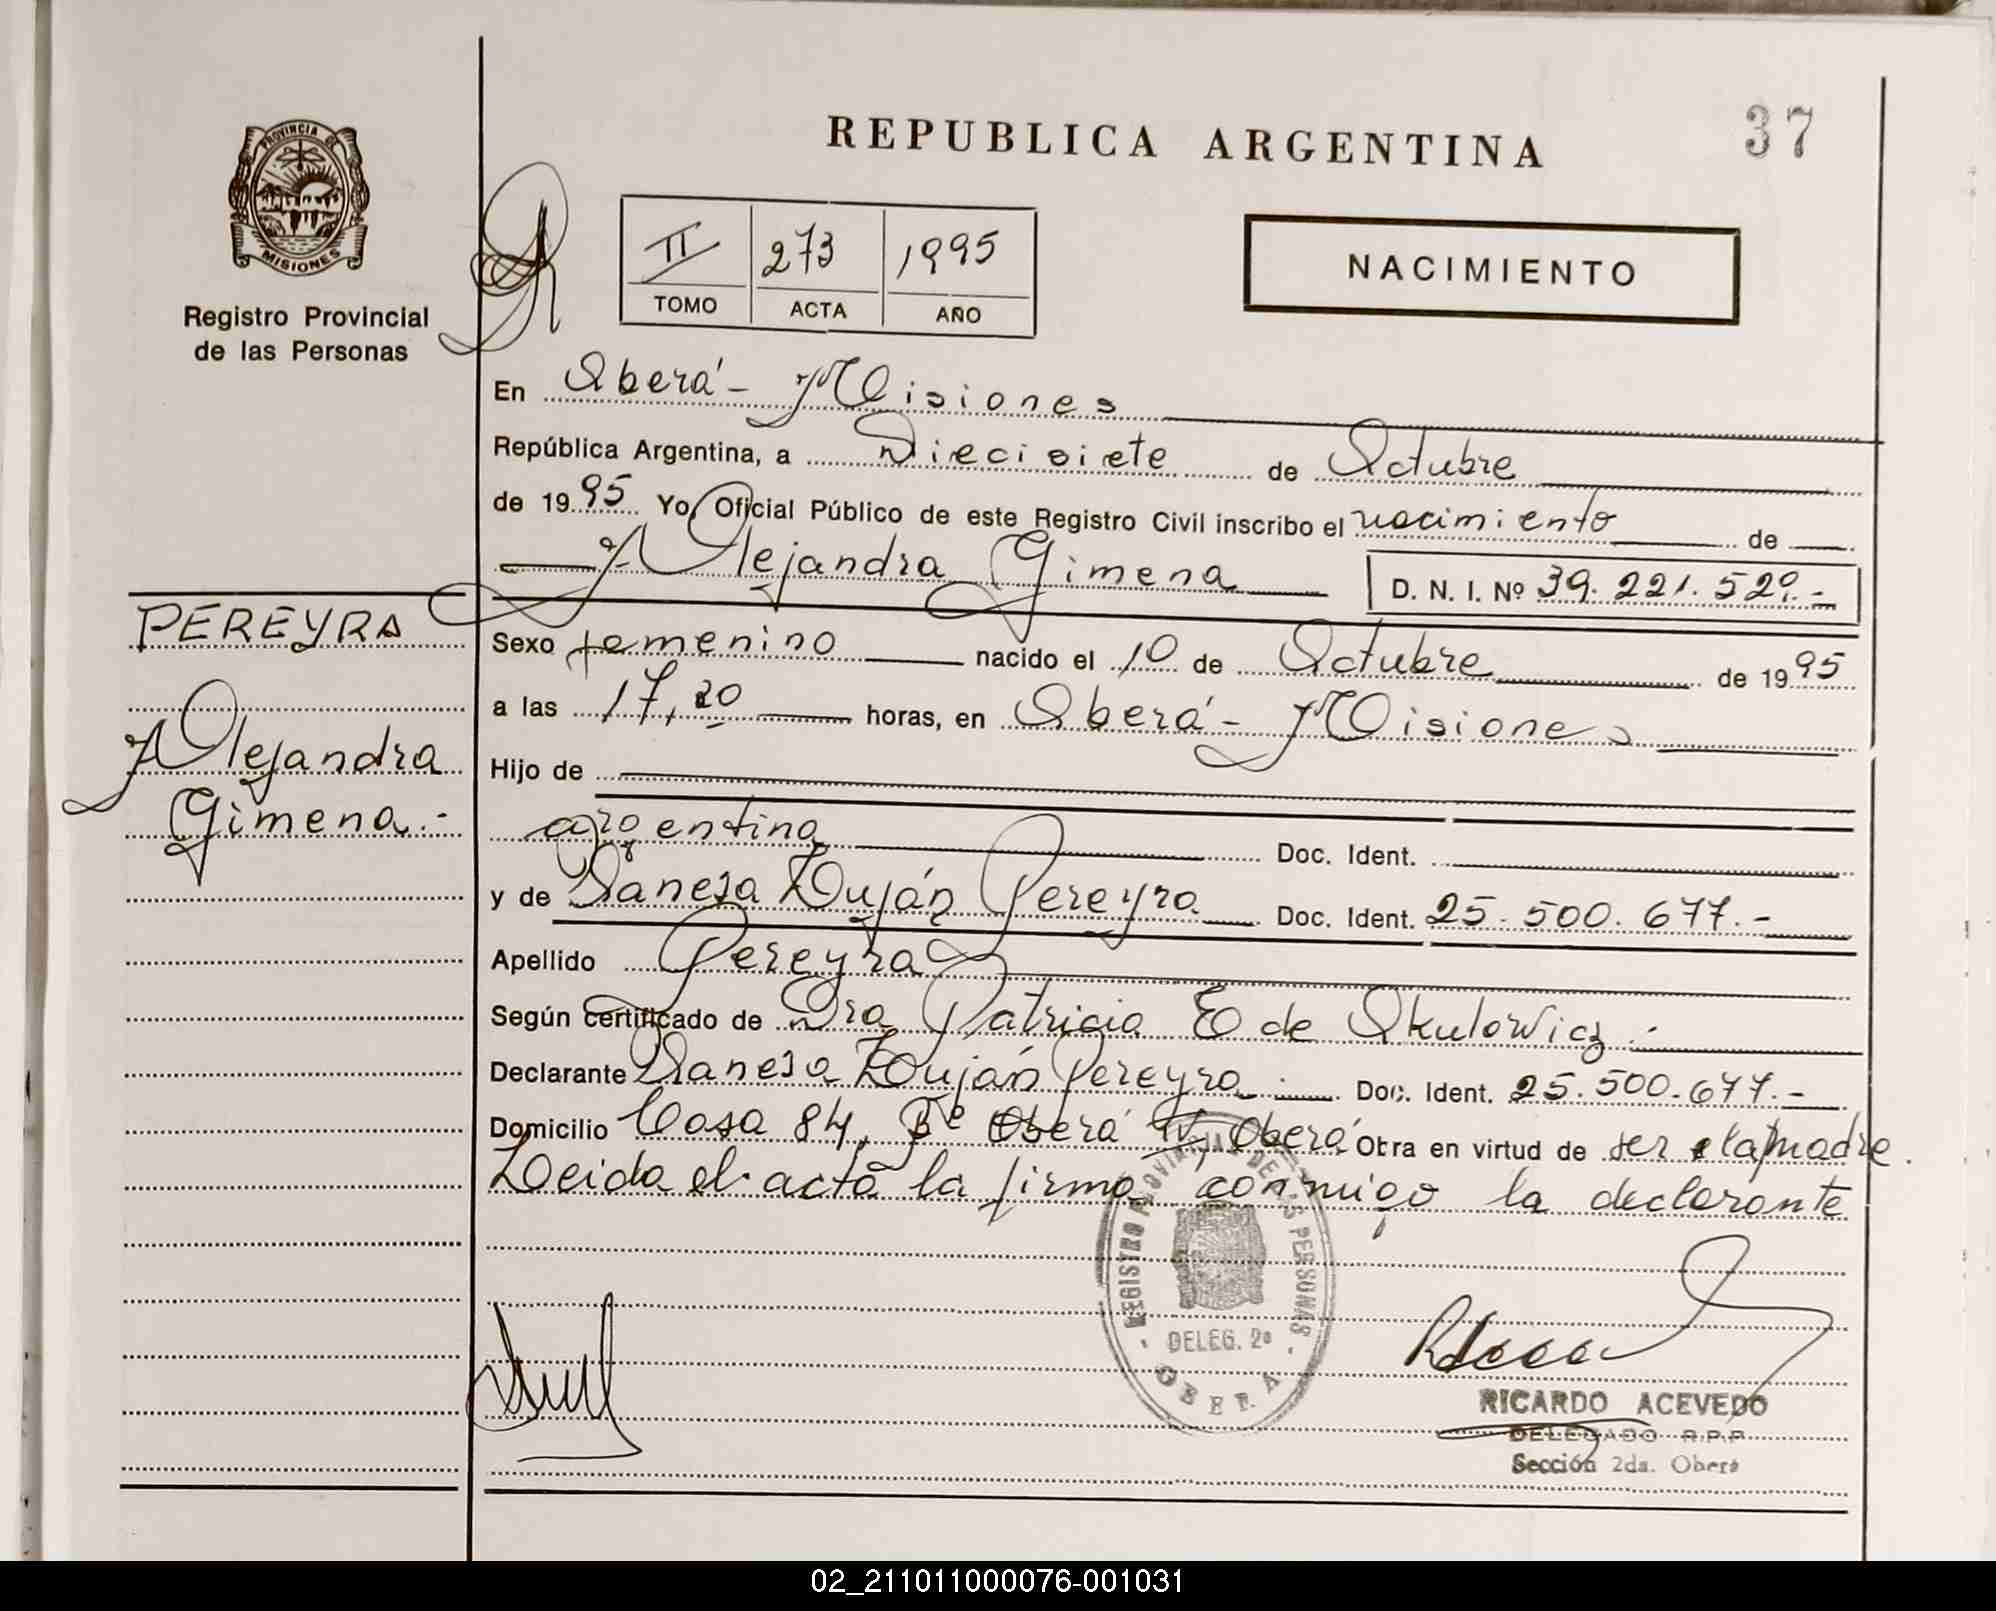 REPUBLICA ARGENTINA
37
PROVINCIA DE
MISIONES
Registro Provincial
de las Personas
II 273 1995
TOMO ACTA AÑO
NACIMIENTO
En Oberá - Misiones
República Argentina, a Diecisiete de Octubre
de 1995 Yo, Oficial Público de este Registro Civil inscribo el nacimiento de
Alejandra Gimena D. N. I. Nº 39.221.529.-
PEREYRA
Alejandra
Gimena.-
Sexo femenino nacido el 10 de Octubre de 1995
a las 17,20 horas, en Oberá - Misiones
Hijo de
argentina Doc. Ident.
y de Vanesa Luján Pereyra Doc. Ident. 25.500.677.-
Apellido Pereyra
Según certificado de Dra Patricia E de Skulowicz.-
Declarante Vanesa Luján Pereyra.- Doc. Ident. 25.500.677.-
Domicilio Casa 84, Bº Oberá IV, Oberá Obra en virtud de ser la madre.
Leida el acta la firma conmigo la declarante
REGISTRO PROVINCIAL DE LAS PERSONAS
DELEG. 2ª
OBERA
RICARDO ACEVEDO
DELEGADO R.P.P.
Sección 2da. Oberá
02_211011000076-001031